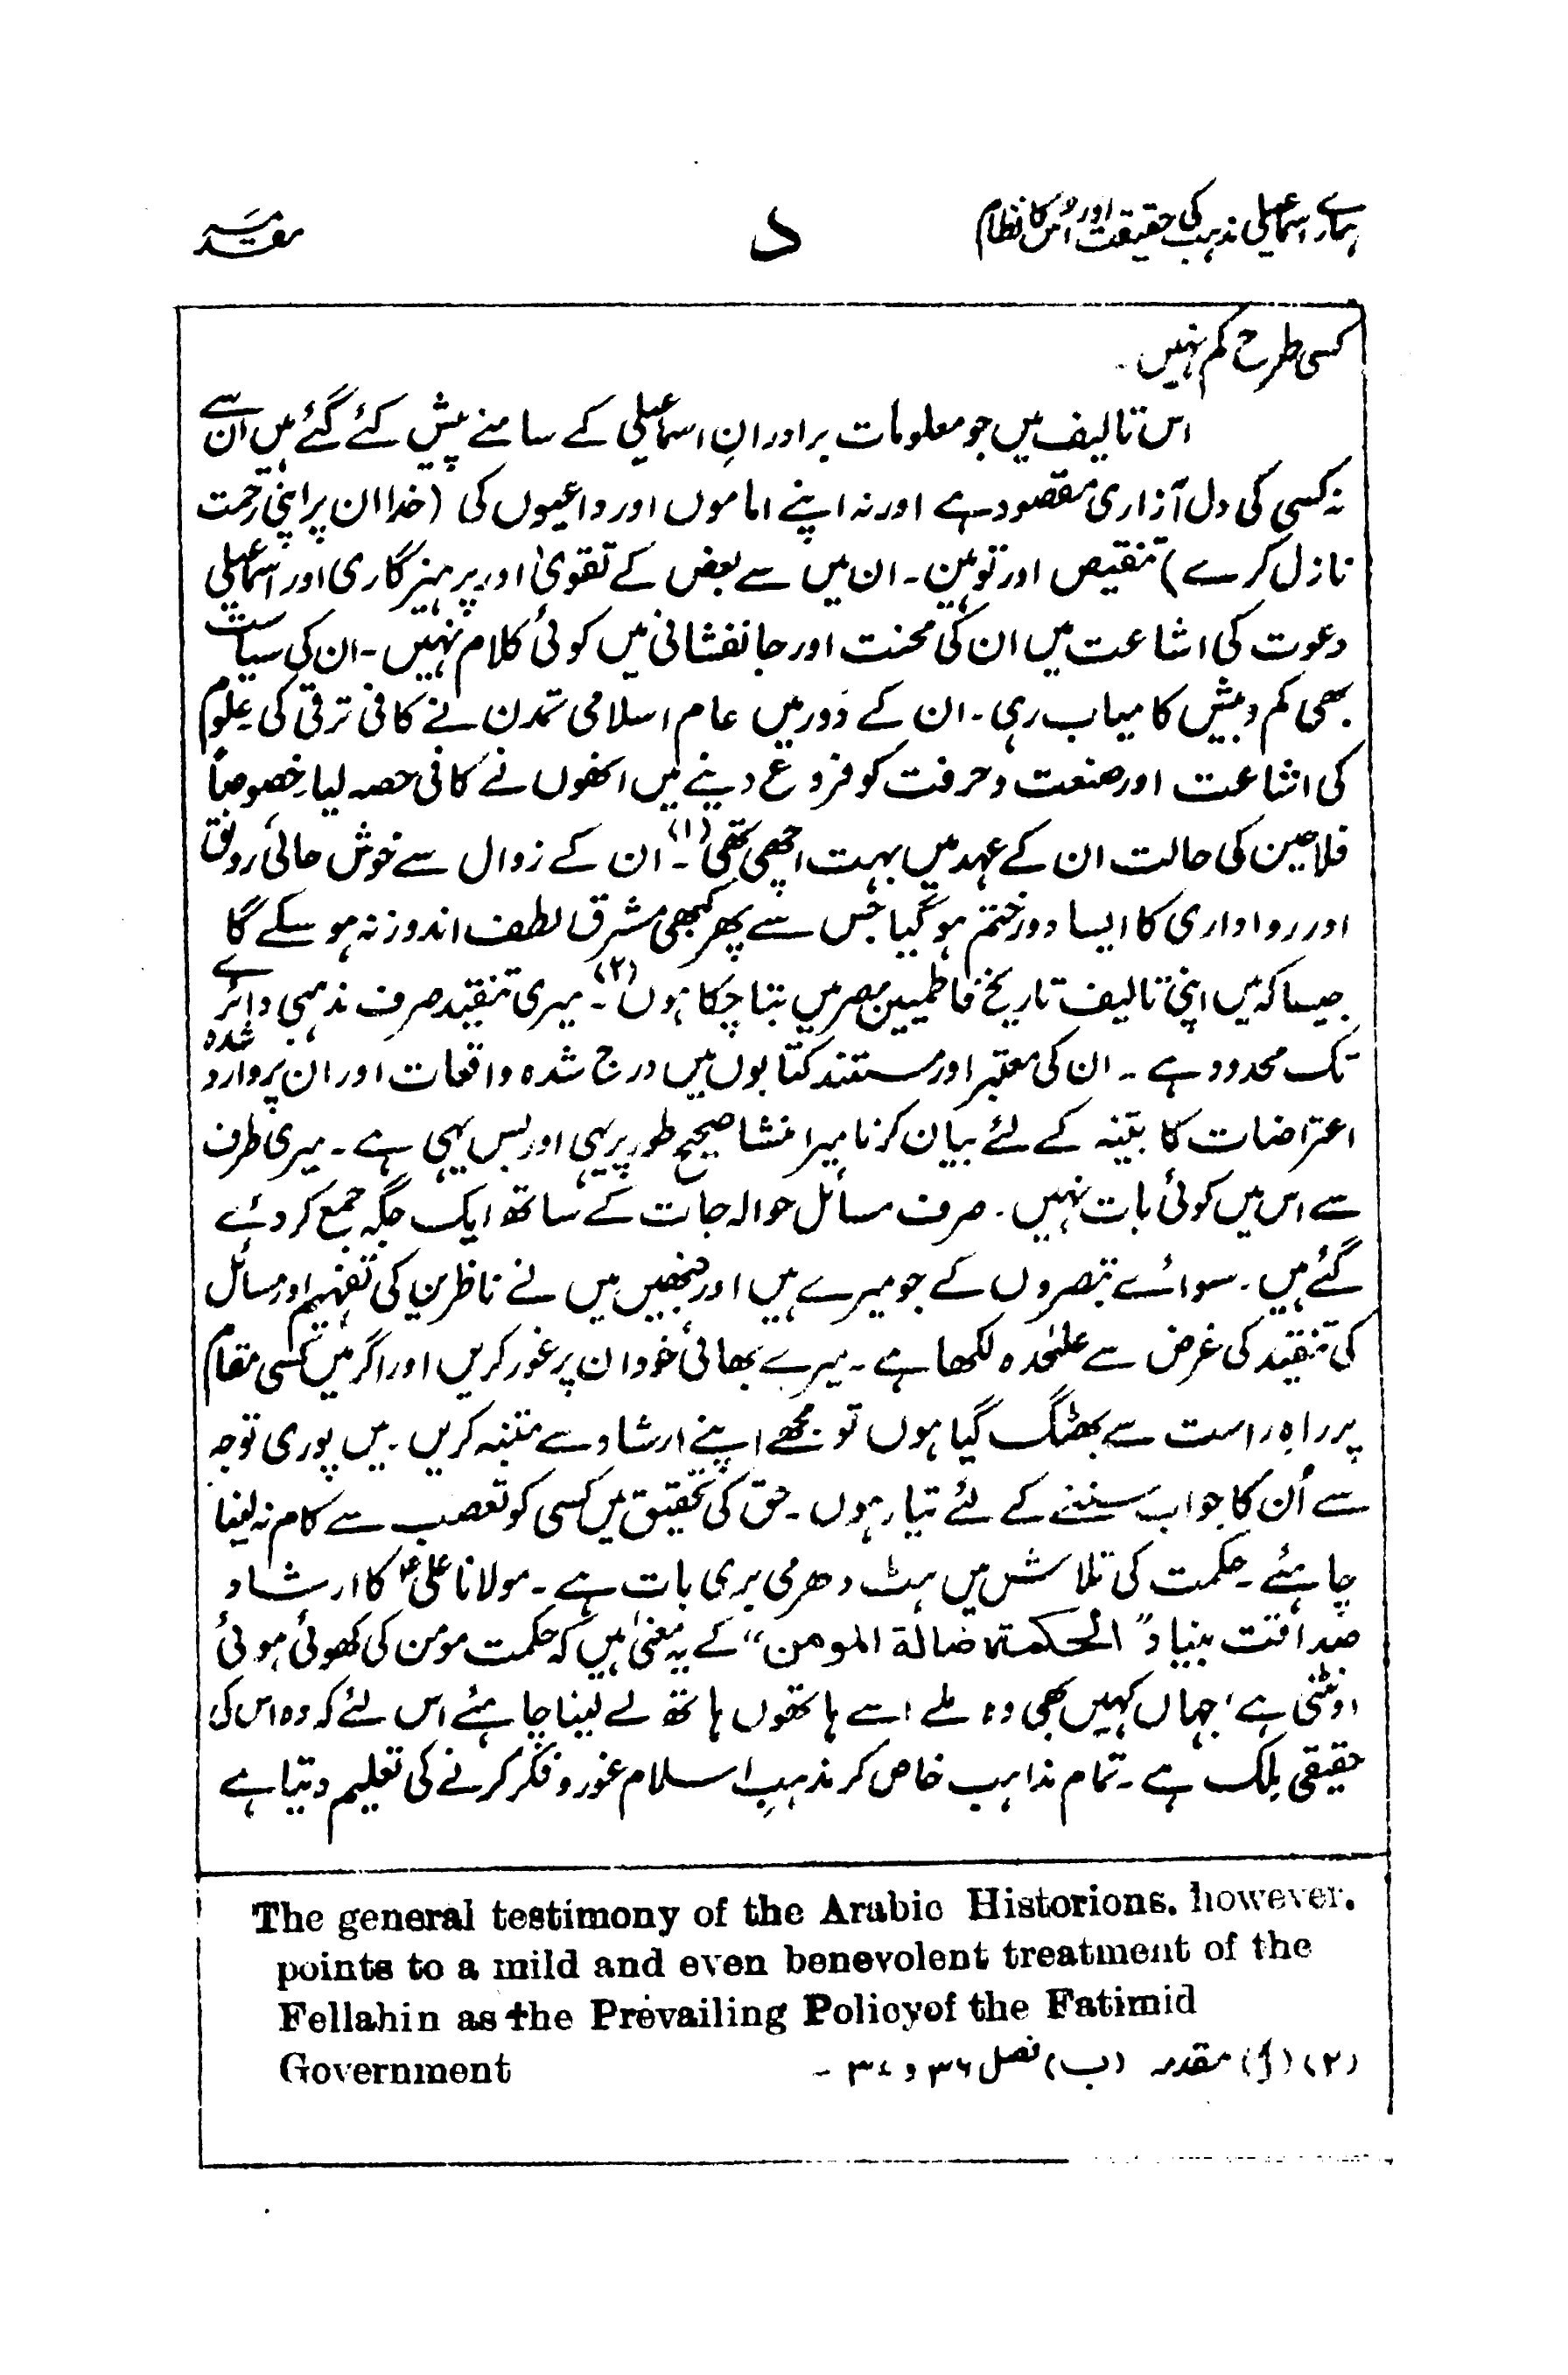 ہمارے اسماعیلی مذہب کی حقیقت اور اس کا نظام
د
مقدمہ
کسی طرح کم نہیں۔
اس تالیف میں جو معلومات برادرانِ اسماعیلی کے سامنے پیش کئے گئے ہیں اُن سے
نہ کسی کی دل آزاری مقصود ہے اور نہ اپنے اماموں اور داعیوں کی (خدا ان پر اپنی رحمت
نازل کرے) تنقیص اور توہین۔ ان میں سے بعض کے تقویٰ اور پرہیزگاری اور اسماعیلی
دعوت کی اشاعت میں ان کی محنت اور جانفشانی میں کوئی کلام نہیں۔ ان کی سیاست
بھی کم و بیش کامیاب رہی۔ ان کے دَور میں عام اسلامی تمدن نے کافی ترقی کی علوم
کی اشاعت اور صنعت و حرفت کو فروغ دینے میں انھوں نے کافی حصہ لیا۔ خصوصاً
فلاحین کی حالت ان کے عہد میں بہت اچھی تھی (۱)۔ ان کے زوال سے خوش حالی، رونق
اور رواداری کا ایسا دور ختم ہوگیا جس سے پھر کبھی مشرق لطف اندوز نہ ہو سکے گا
جیسا کہ میں اپنی تالیف تاریخ فاطمیین مصر میں بتا چکا ہوں (۲)۔ میری تنقید صرف مذہبی دائرے
تک محدود ہے ۔ ان کی معتبر اور مستند کتابوں میں درج شدہ واقعات اور ان پر وارد شدہ
اعتراضات کا بیّنہ کے لئے بیان کرنا میرا منشا صحیح طور پر یہی اور بس یہی ہے ۔ میری طرف
سے اس میں کوئی بات نہیں ۔ صرف مسائل حوالہ جات کے ساتھ ایک جگہ جمع کر دئے
گئے ہیں ۔ سوائے تبصروں کے جو میرے ہیں اور جنھیں میں نے ناظرین کی تفہیم اور مسائل
کی تنقید کی غرض سے علٰحدہ لکھا ہے ۔ میرے بھائی خود ان پر غور کریں اور اگر میں کسی مقام
پر راہِ راست سے بھٹک گیا ہوں تو مجھے اپنے ارشاد سے متنبہ کریں ۔ میں پوری توجہ
سے اُن کا جواب سننے کے لئے تیار ہوں ۔ حق کی تحقیق میں کسی کو تعصب سے کام نہ لینا
چاہئے ۔ حکمت کی تلاش میں ہٹ دھرمی بری بات ہے ۔ مولانا علیؑ کا ارشاد
صداقت بنیاد ”الحکمة ضالة المومن“ کے یہ معنیٰ ہیں کہ حکمت مومن کی کھوئی ہوئی
اونٹنی ہے، جہاں کہیں بھی وہ ملے اسے ہاتھوں ہاتھ لے لینا چاہئے اس لئے کہ وہ اس کی
حقیقی مِلک ہے ۔ تمام مذاہب خاص کر مذہبِ اسلام غور و فکر کرنے کی تعلیم دیتا ہے
The general testimony of the Arabic Historions. however.
points to a mild and even benevolent treatment of the
Fellahin as the Prevailing Policyof the Fatimid
Government
(۲) (أ) مقدمہ (ب) فصل ۳۶ و ۳۸ ۔